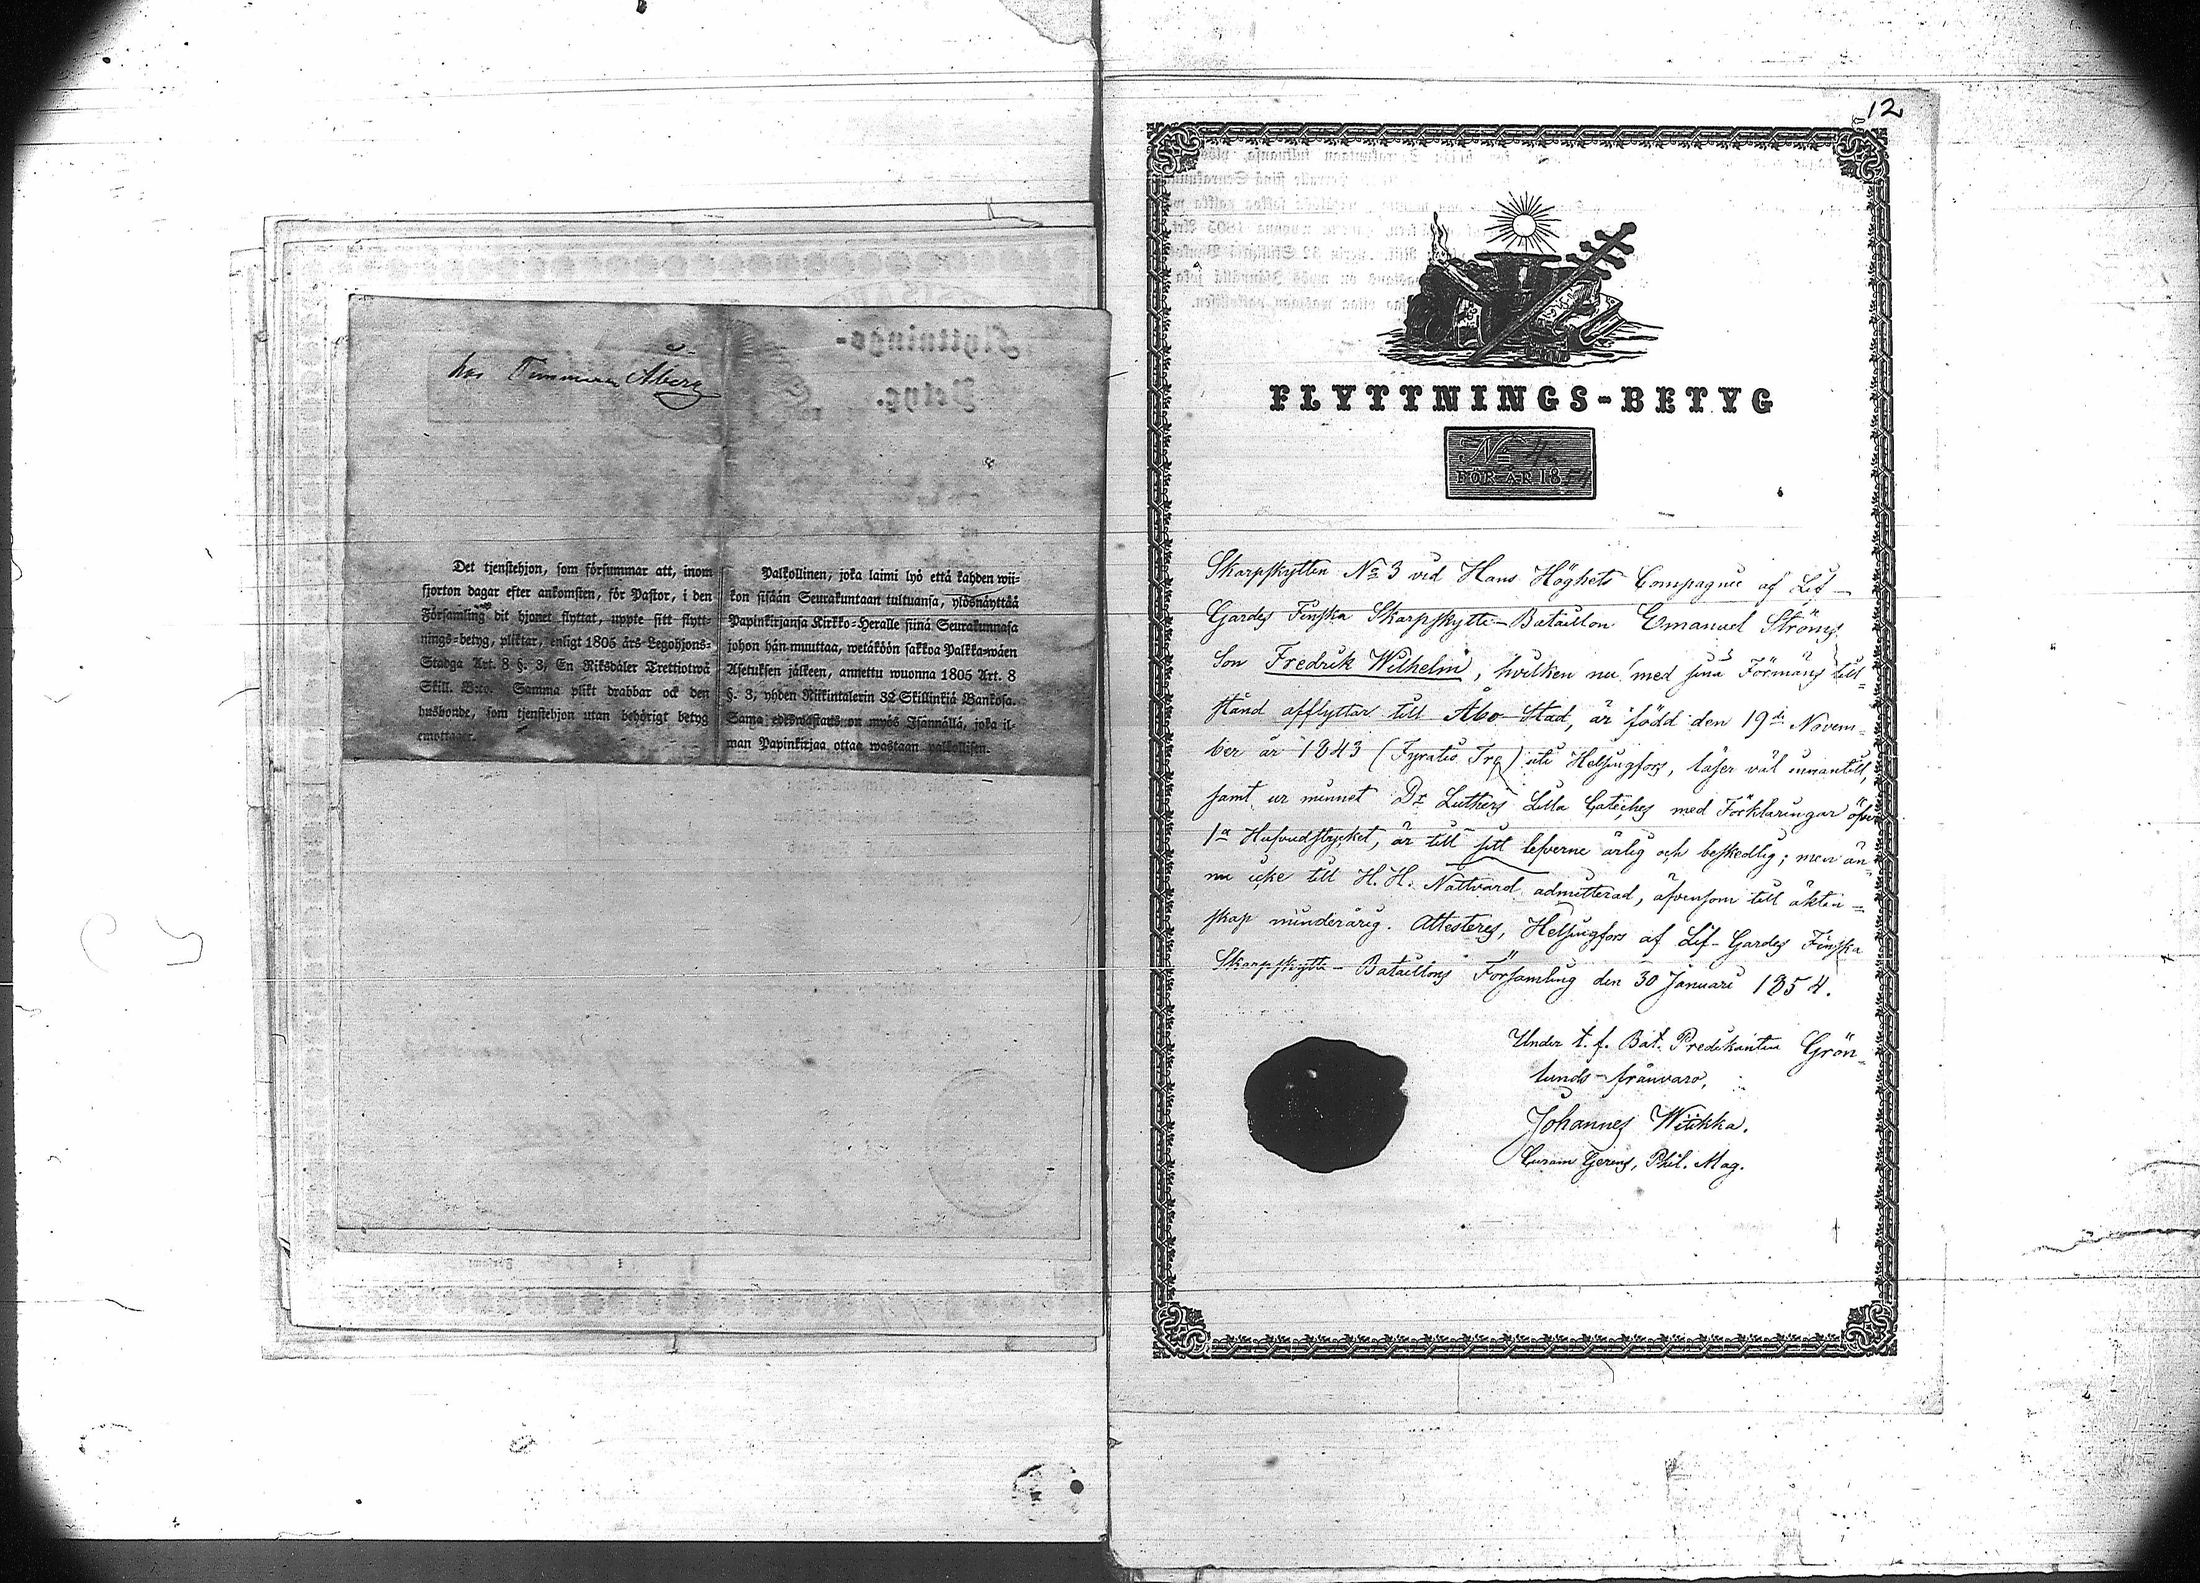 hos Timmerm Åberg
Det tjenstehjon, som försummar att, inom
fjorton dagar efter ankomsten, för Pastor, i den
Församling dit hjonet flyttat, uppte sitt flytt-
nings-betyg, pliktar, enligt 1805 års Legohjons-
Stadga Art. 8 §. 3, En Riksdaler Trettiotwå
Skill. B:co. Samma plikt drabbar ock den
husbonde, som tjenstehjon utan behörigt betyg
emottager.
Palkollinen, joka laimi lyö että kahden wii-
kon sisään Seurakuntaan tultuansa, ylösnäyttää
Papinkirjansa Kirkko-Herralle siinä Seurakunnasa
johon hän muuttaa, wetäköön sakkoa Palkka-wäen
Asetuksen jälkeen, annettu wuonna 1805 Art. 8
§. 3, yhden Riikintalerin 32 Skillinkiä Bankosa.
Sama edeswastaus on myös Isännällä, joka il-
man Papinkirjaa ottaa wastaan palkollisen.
12
FLYTTNINGS-BETYG
No 4
FÖR ÅR 1854
Skarpskytten No 3 vid Hans Höghets Compagnie af Lif-
Gardes Finska Skarpskytte-Bataillon Emanuel Ströms
Son Fredrik Wilhelm, hvilken nu med sina Förmäns till=
stånd afflyttar till Åbo Stad, är född den 19de Novem=
ber år 1843 (Fyratio Tre) uti Helsingfors, läser väl innantill,
samt ur minnet Dr Luthers Lilla Cateches med Förklaringar öfver
1a Hufvudstycket, är till sitt lefverne ärlig och beskedlig; men än=
nu icke till H. H. Nattvard admitterad, äfvensom till äkten=
skap minderårig. Attesteras, Helsingfors af Lif-Gardes Finska
Skarpskytte-Bataillons Församling den 30 Januari 1854.
Under t. f. Bat. Predikanten Grön=
lunds frånvaro,
Johannes Witikka.
Curam Gerens, Phil. Mag.